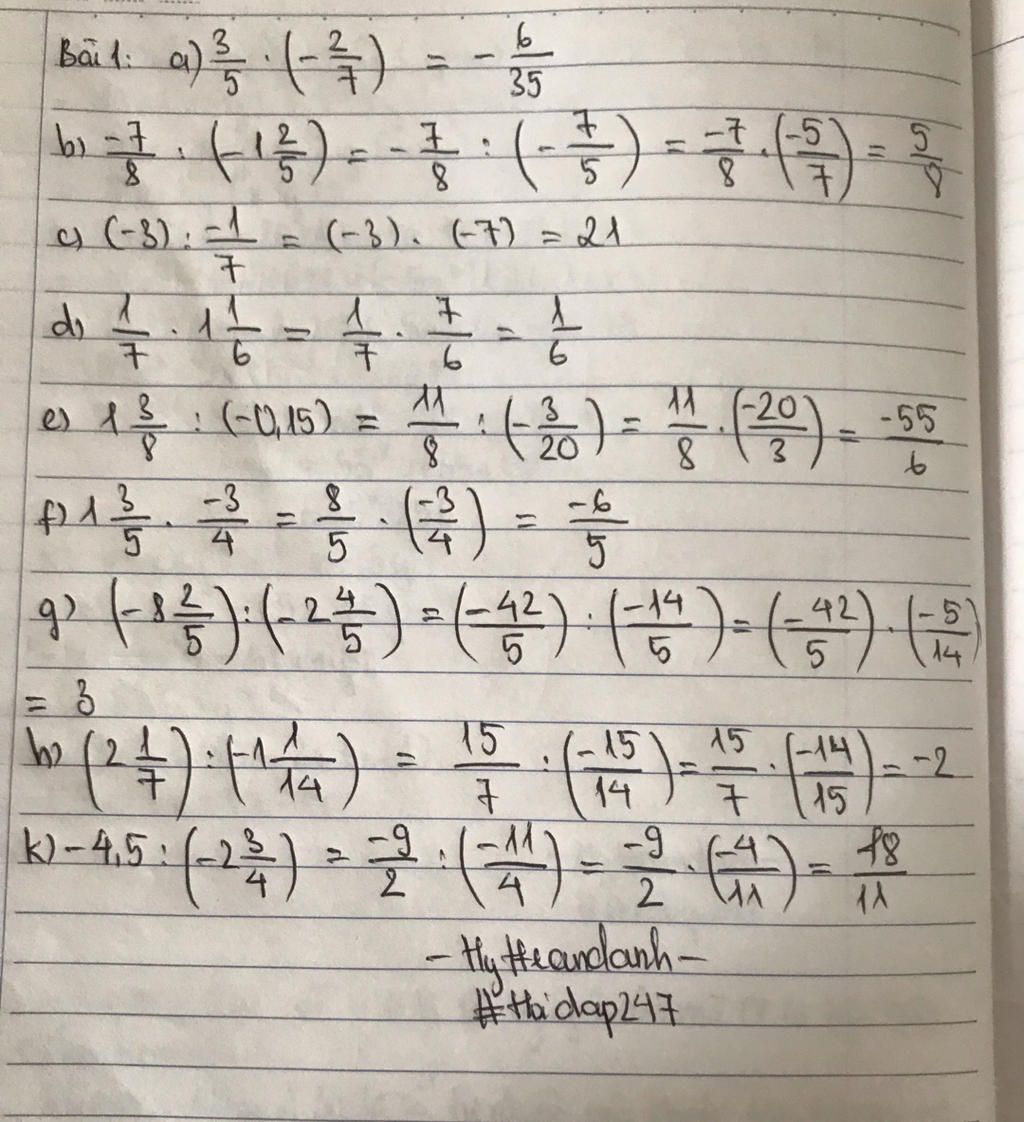 Bài 1: a) 3/5 . (-2/7) = -6/35
b) -7/8 : (-1 2/5) = -7/8 : (-7/5) = -7/8 . (-5/7) = 5/8
c) (-3) : -1/7 = (-3) . (-7) = 21
d) 1/7 . 1 1/6 = 1/7 . 7/6 = 1/6
e) 1 3/8 : (-0,15) = 11/8 : (-3/20) = 11/8 . (-20/3) = -55/6
f) 1 3/5 . -3/4 = 8/5 . (-3/4) = -6/5
g) (-8 2/5) : (-2 4/5) = (-42/5) : (-14/5) = (-42/5) . (-5/14)
= 3
h) (2 1/7) : (-1 1/14) = 15/7 : (-15/14) = 15/7 . (-14/15) = -2
k) -4,5 : (-2 3/4) = -9/2 : (-11/4) = -9/2 . (-4/11) = 18/11
#Hoidap247